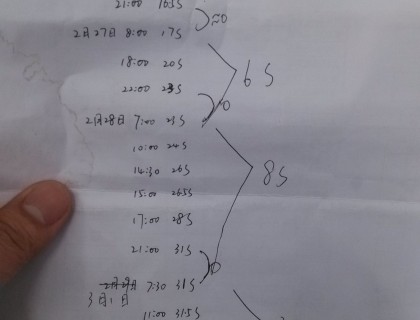 21:00 16.5S
≈0
2月27日 8:00 17S
18:00 20S
6S
22:00 23S
0
2月28日 7:00 23S
10:00 24S
14:30 26S
8S
15:00 26.5S
17:00 28S
21:00 31S
0
2月29日 7:30 31S
3月1日
11:00 31.5S